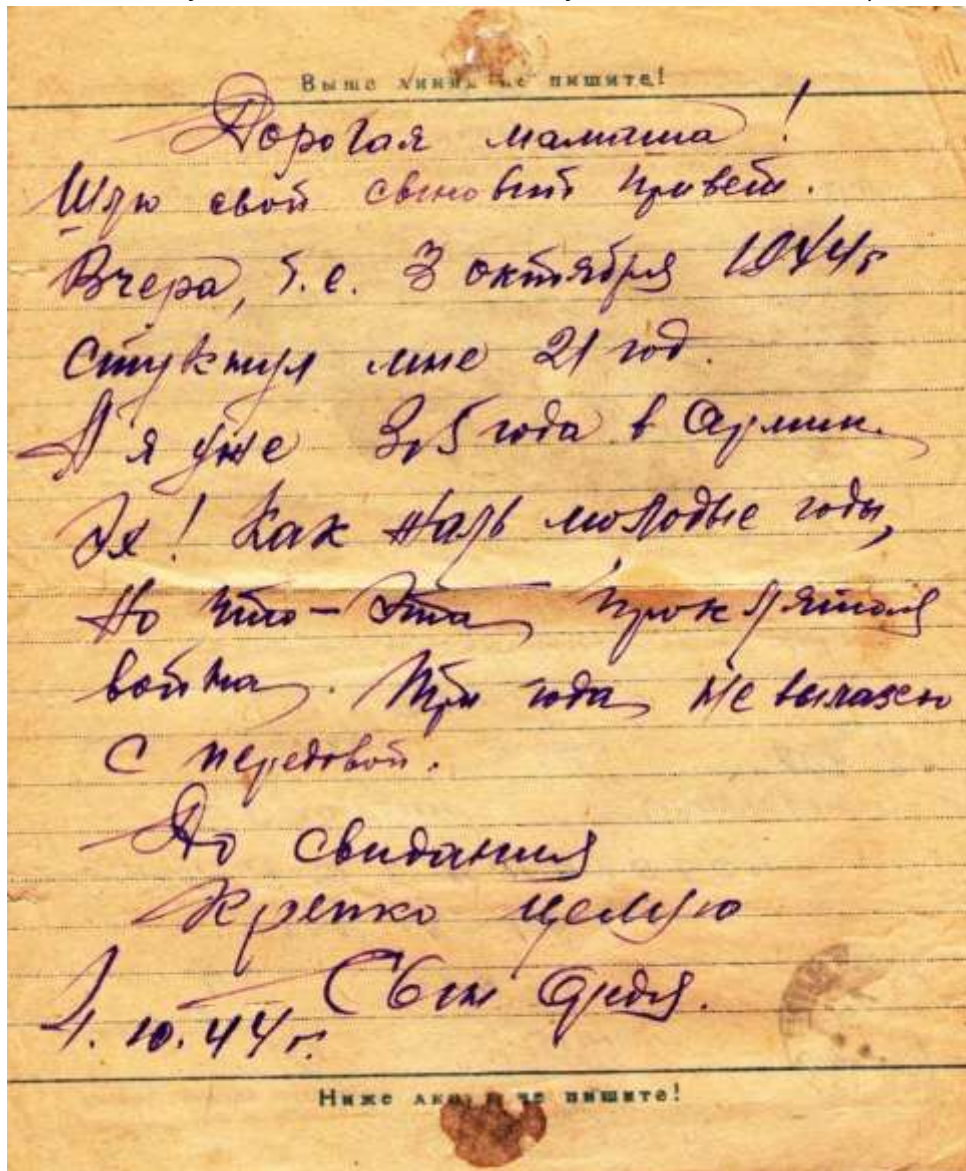 Выше линии не пишите!
Дорогая мамаша!
Шлю свой сыновий привет.
Вчера, т.е. 3 октября 1944г
стукнул мне 21 год.
А я уже 3,5 года в Армии.
Эх! Как жаль молодые годы,
но что-эта проклятая
война. Три года не вылазею
с передовой.
До свидания
Крепко целую
Сын
4. 10. 44 г.
Ниже линии не пишите!